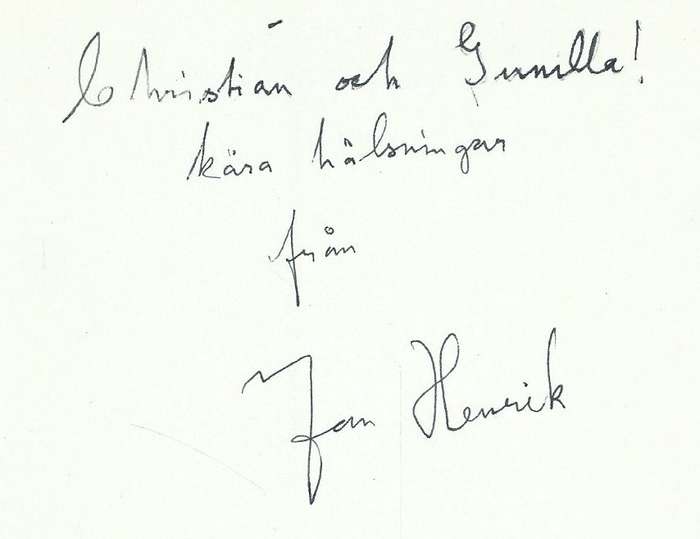 Christian och Gunilla!
kära hälsningar
från
Jan Henrik